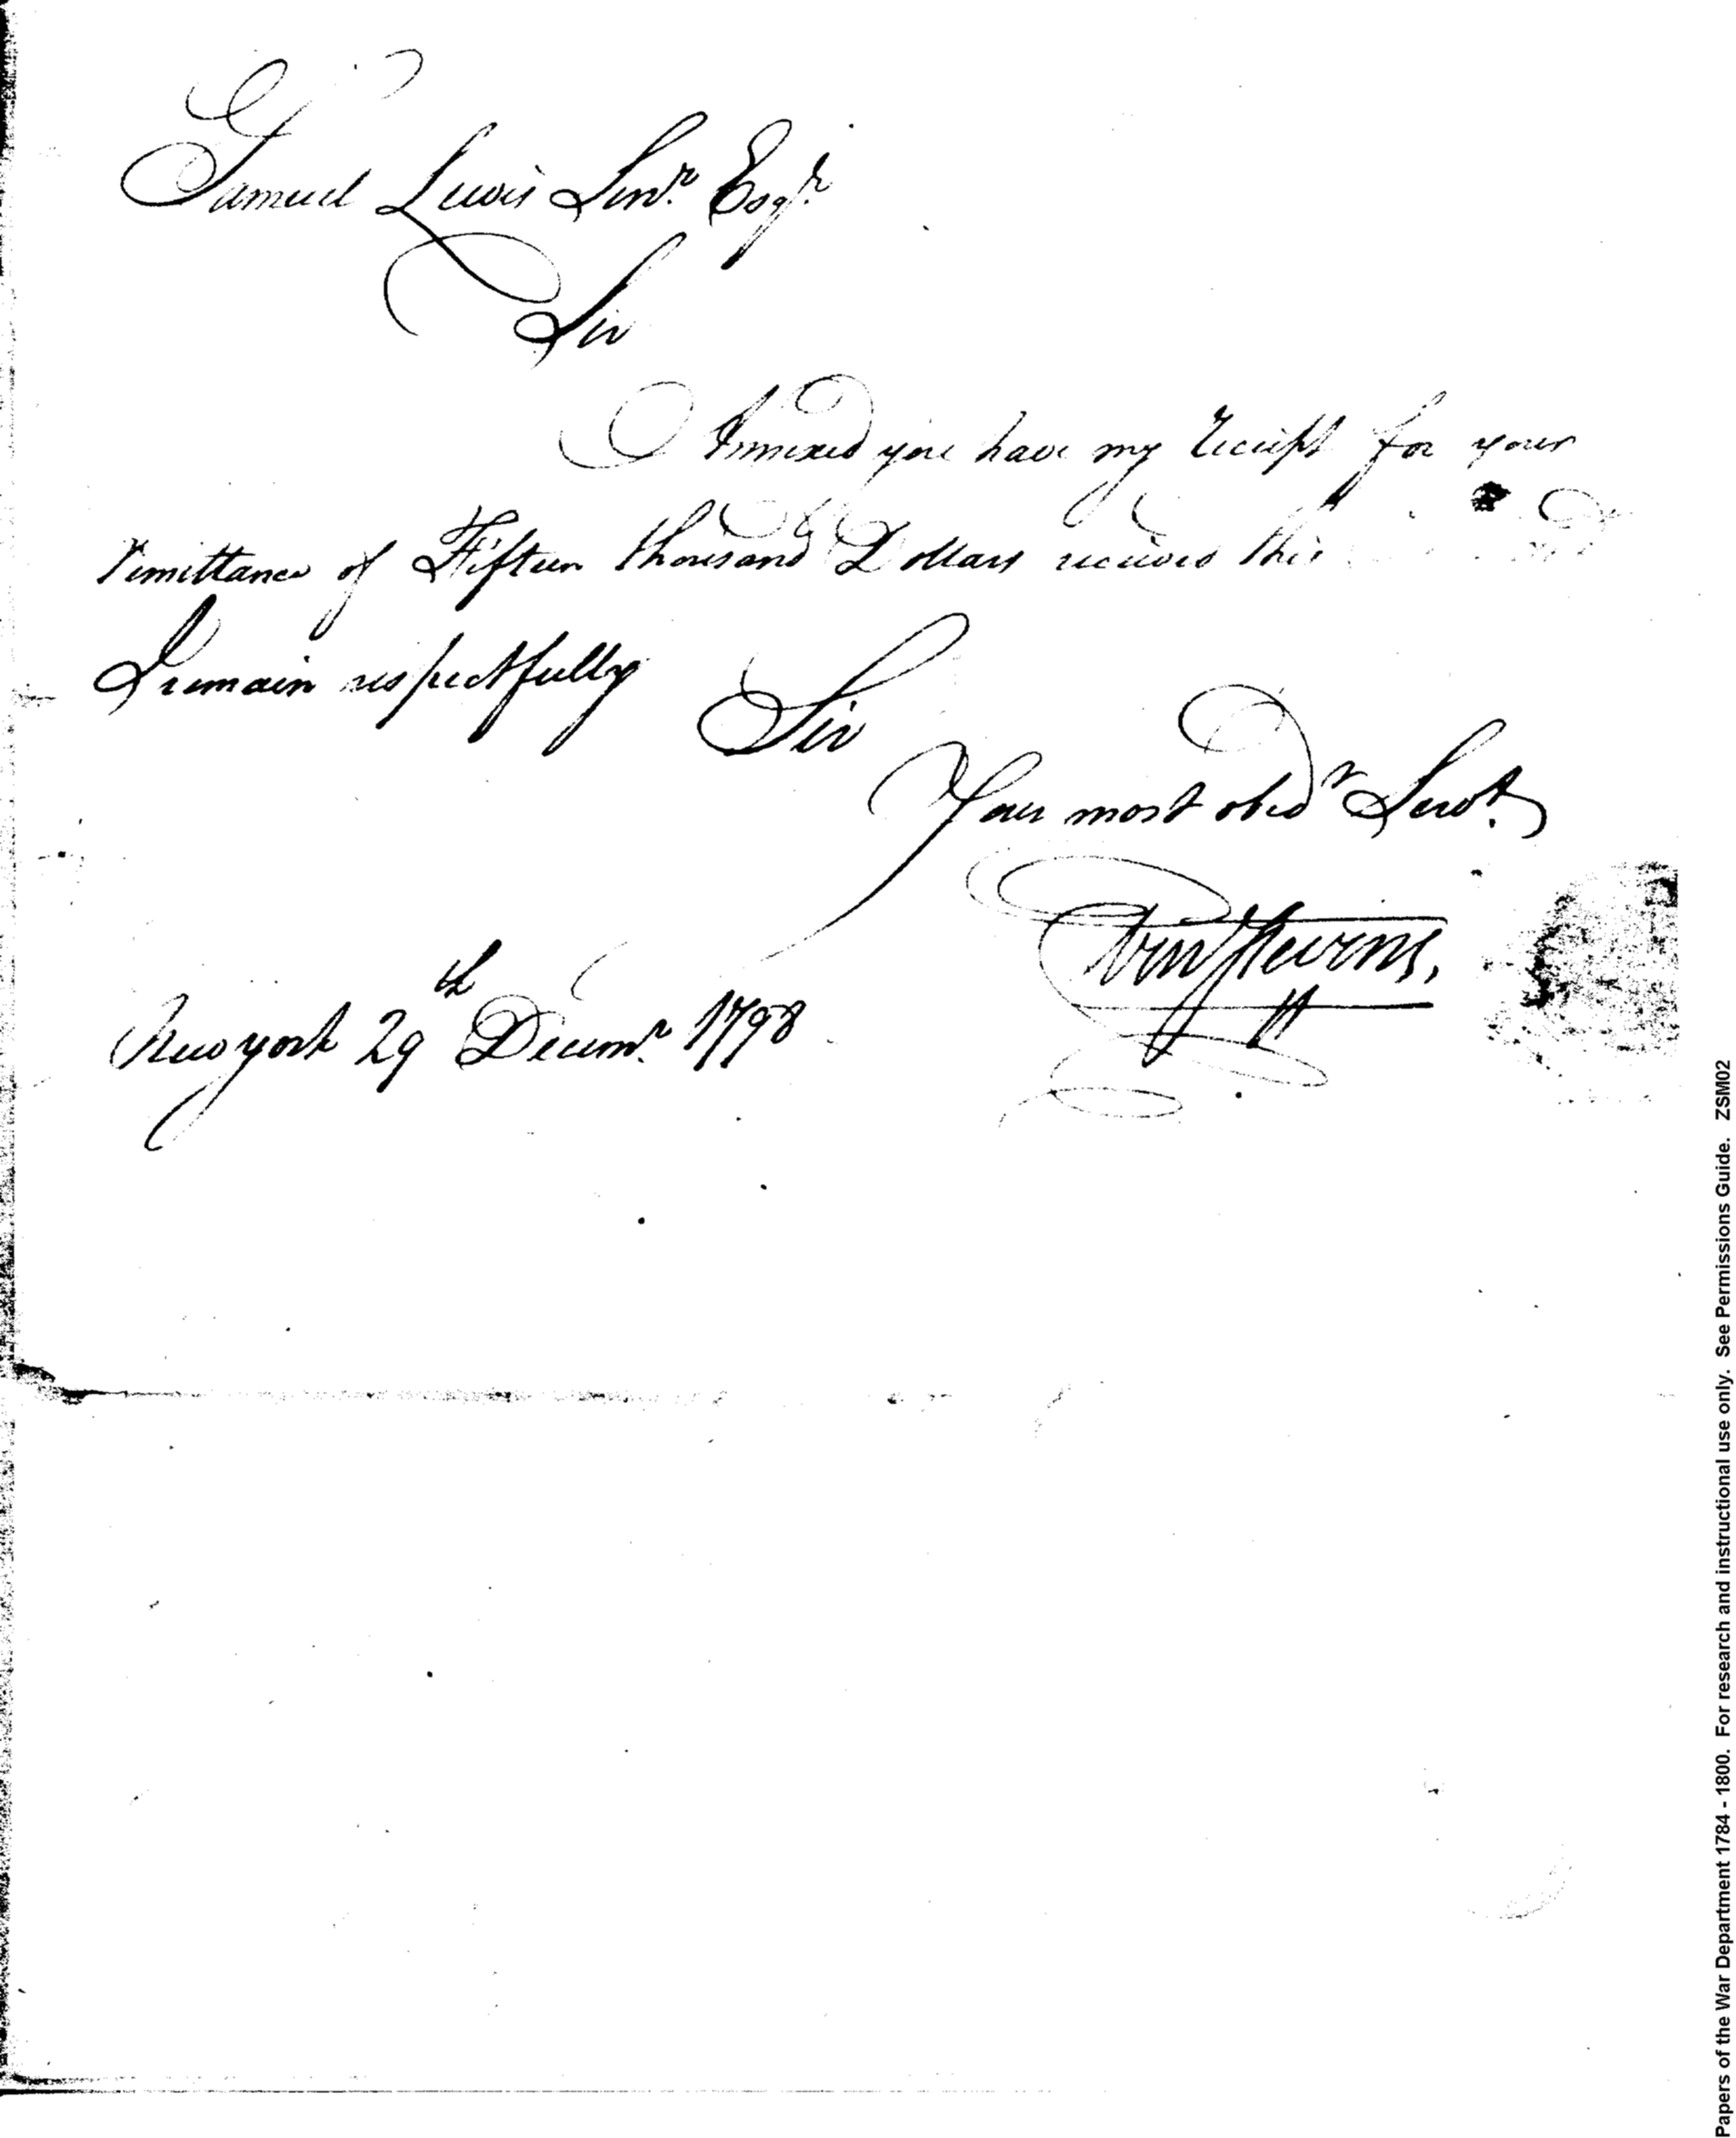 Samuel Lewis Senr. Esqr.
Sir
Annexed you have my Receipt for your
remittance of Fifteen thousand Dollars received this
I remain respectfully
Sir
Your most obedt Servt.
Ebenr Stevens,
New york 29th Decemr. 1798
Papers of the War Department 1784 - 1800. For research and instructional use only. See Permissions Guide. ZSM02